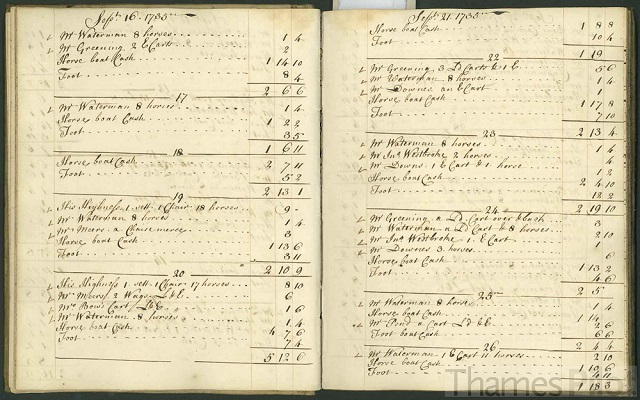 Sept. 16. 1735
Mr Waterman 8 horses 1 4
Mr Greening 2 E Carts 2
Horse boat Cash 1 14 10
Foot 8 4
2 6 6
17
Mr Waterman 8 horses 1 4
Horse boat Cash 1 2 2
Foot 3 5
1 6 11
18
Horse boat Cash 2 7 11
Foot 5 2
2 13 1
19
His Highness 1 vess. 1 Chair 18 horses 9 -
Mr Waterman 8 horses 1 4
Mr Meers a Chaise 3
Horse boat Cash 1 13 6
Foot 3 11
2 10 9
20
His Highness 1 vess. 1 Chair 17 horses 8 10
Mr Meers 2 Wagns Ld & E 6
Mrs Bows Cart Ld & E 1 6
Mr Waterman 8 horses 1 4
Horse boat Cash 4 7 6
Foot 7 4
5 12 6
Sept. 21. 1735
Horse boat Cash 1 8 8
Foot 10 4
1 19
22
Mr Greening 3 Ld Carts & 1 E 5 6
Mr Waterman 8 horses 1 4
Mr Downes an E Cart 1
Horse boat Cash 1 17 8
Foot 7 10
2 13 4
23
Mr Waterman 8 horses 1 4
Mr Jno Westbroke 2 horses 4
Mr Downs 1 E Cart & 1 horse 1 2
Horse boat Cash 2 4 10
Foot 12 2
2 19 10
24
Mr Greening a Ld Cart over & back 3
Mr Waterman a Ld Cart & 8 horses 2 10
Mr Jno Westbroke 1 E Cart 1
Mr Downes 3 horses 6
Horse boat Cash 1 13 2
Foot 4 6
2 5
25
Mr Waterman 8 horse 1 4
Horse boat Cash 1 14
Mr Pond a Cart Ld & E 2 6
Foot 6 6
2 4 4
26
Mr Waterman 1 E Cart 11 horses 2 10
Horse boat Cash 1 10 6
Foot 4 11
1 18 3
Thames